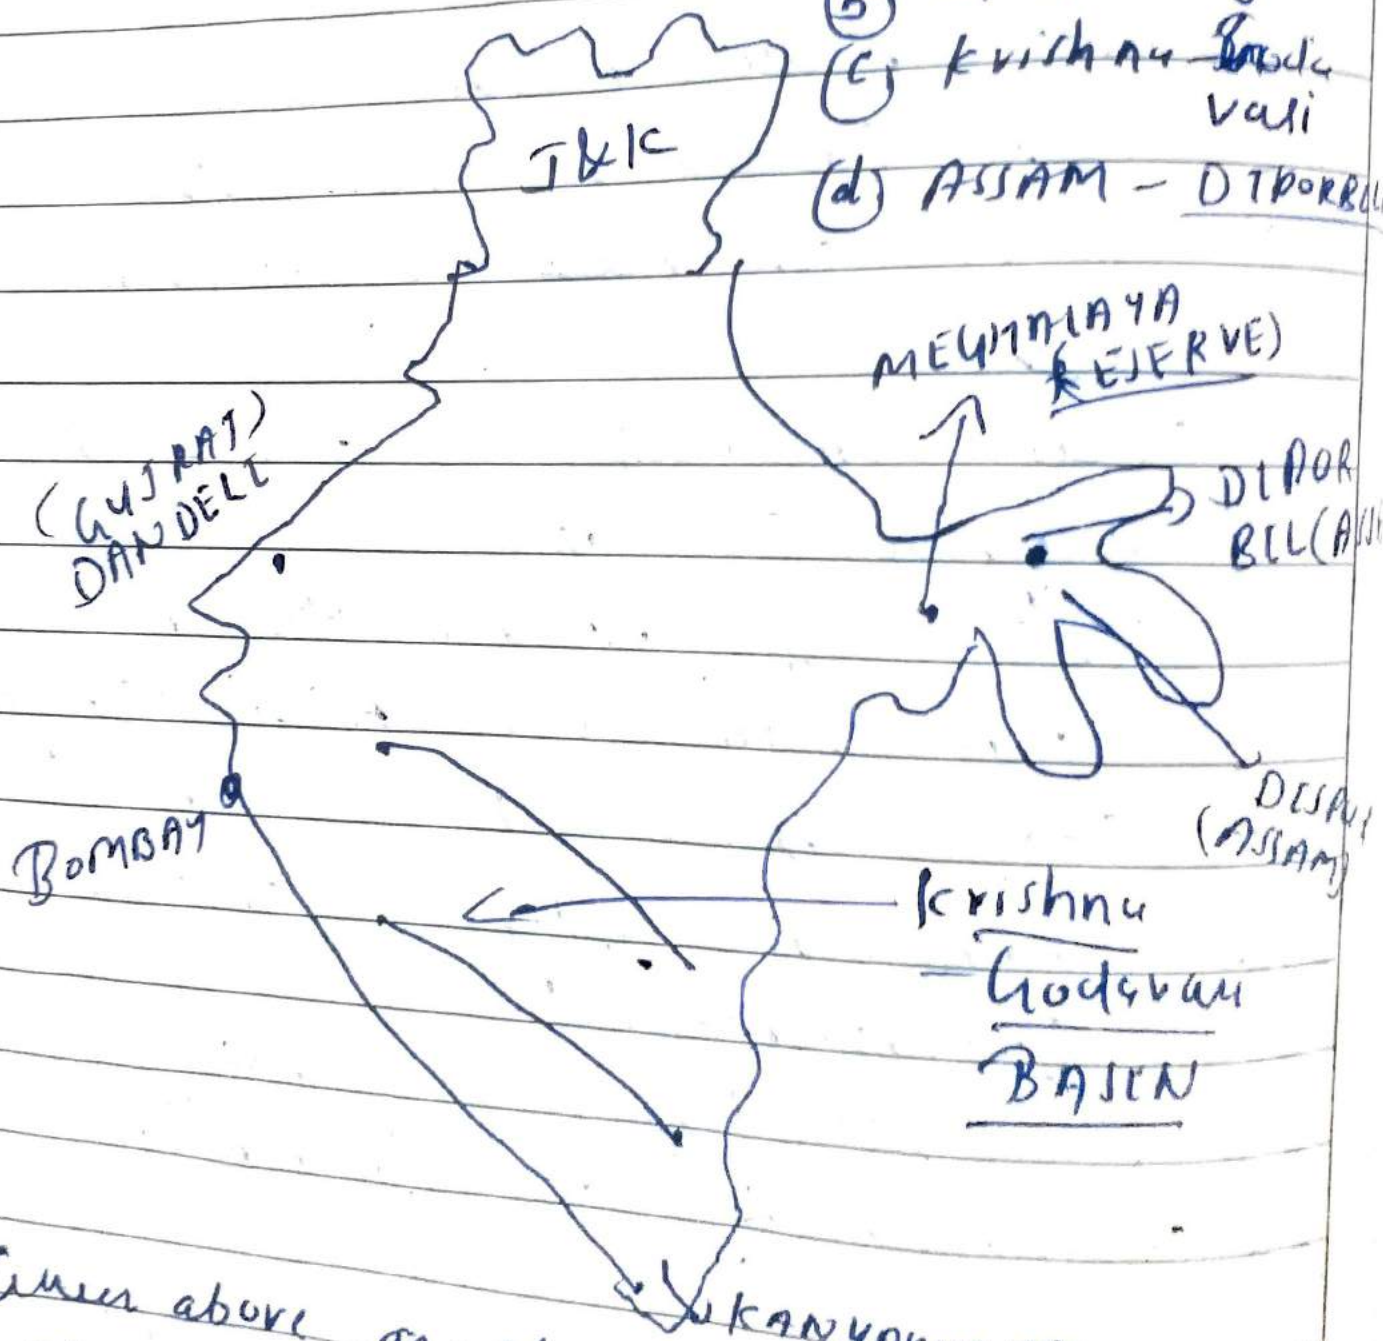 (b)
(c) Krishna Goda
vari
(d) ASSAM - DIBORBIL
J&K
MEGHALAYA
RESERVE)
(GUJRAT)
DANDELI
DIBOR
BIL(ASS
DISPU
(ASSAM)
BOMBAY
Krishna
- Godavari
BASIN
above
KANYA